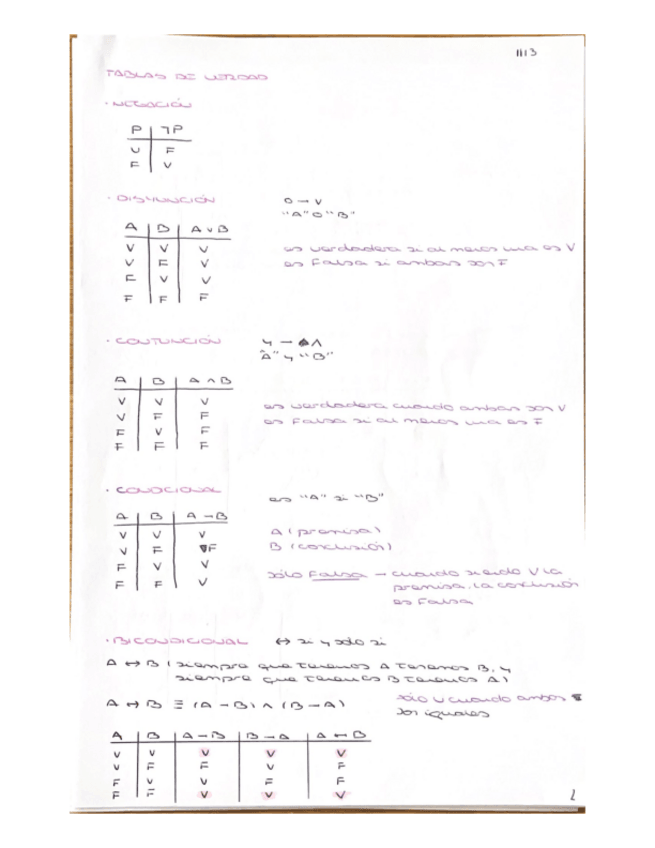 1113
TABLAS DE VERDAD
· NEGACIÓN
P ¬P
V F
F V
· DISYUNCIÓN O → V
"A" O "B"
A B A v B
V V V es verdadera si al menos una es V
V F V es Falsa si ambas son F
F V V
F F F
· CONJUNCIÓN y → ∧
"A" y "B"
A B A ∧ B
V V V es verdadera cuando ambas son V
V F F es Falsa si al menos una es F
F V F
F F F
· CONDICIONAL es "A" si "B"
A B A → B
V V V A (premisa)
V F F B (conclusión)
F V V sólo Falsa → cuando siendo V la
F F V premisa, la conclusión
es Falsa
· BICONDICIONAL ↔ si y solo si
A ↔ B (siempre que tenemos A tenemos B, y
siempre que tenemos B tenemos A)
A ↔ B ≡ (A → B) ∧ (B → A) sólo V cuando ambos
son iguales
A B A → B B → A A ↔ B
V V V V V
V F F V F
F V V F F
F F V V V